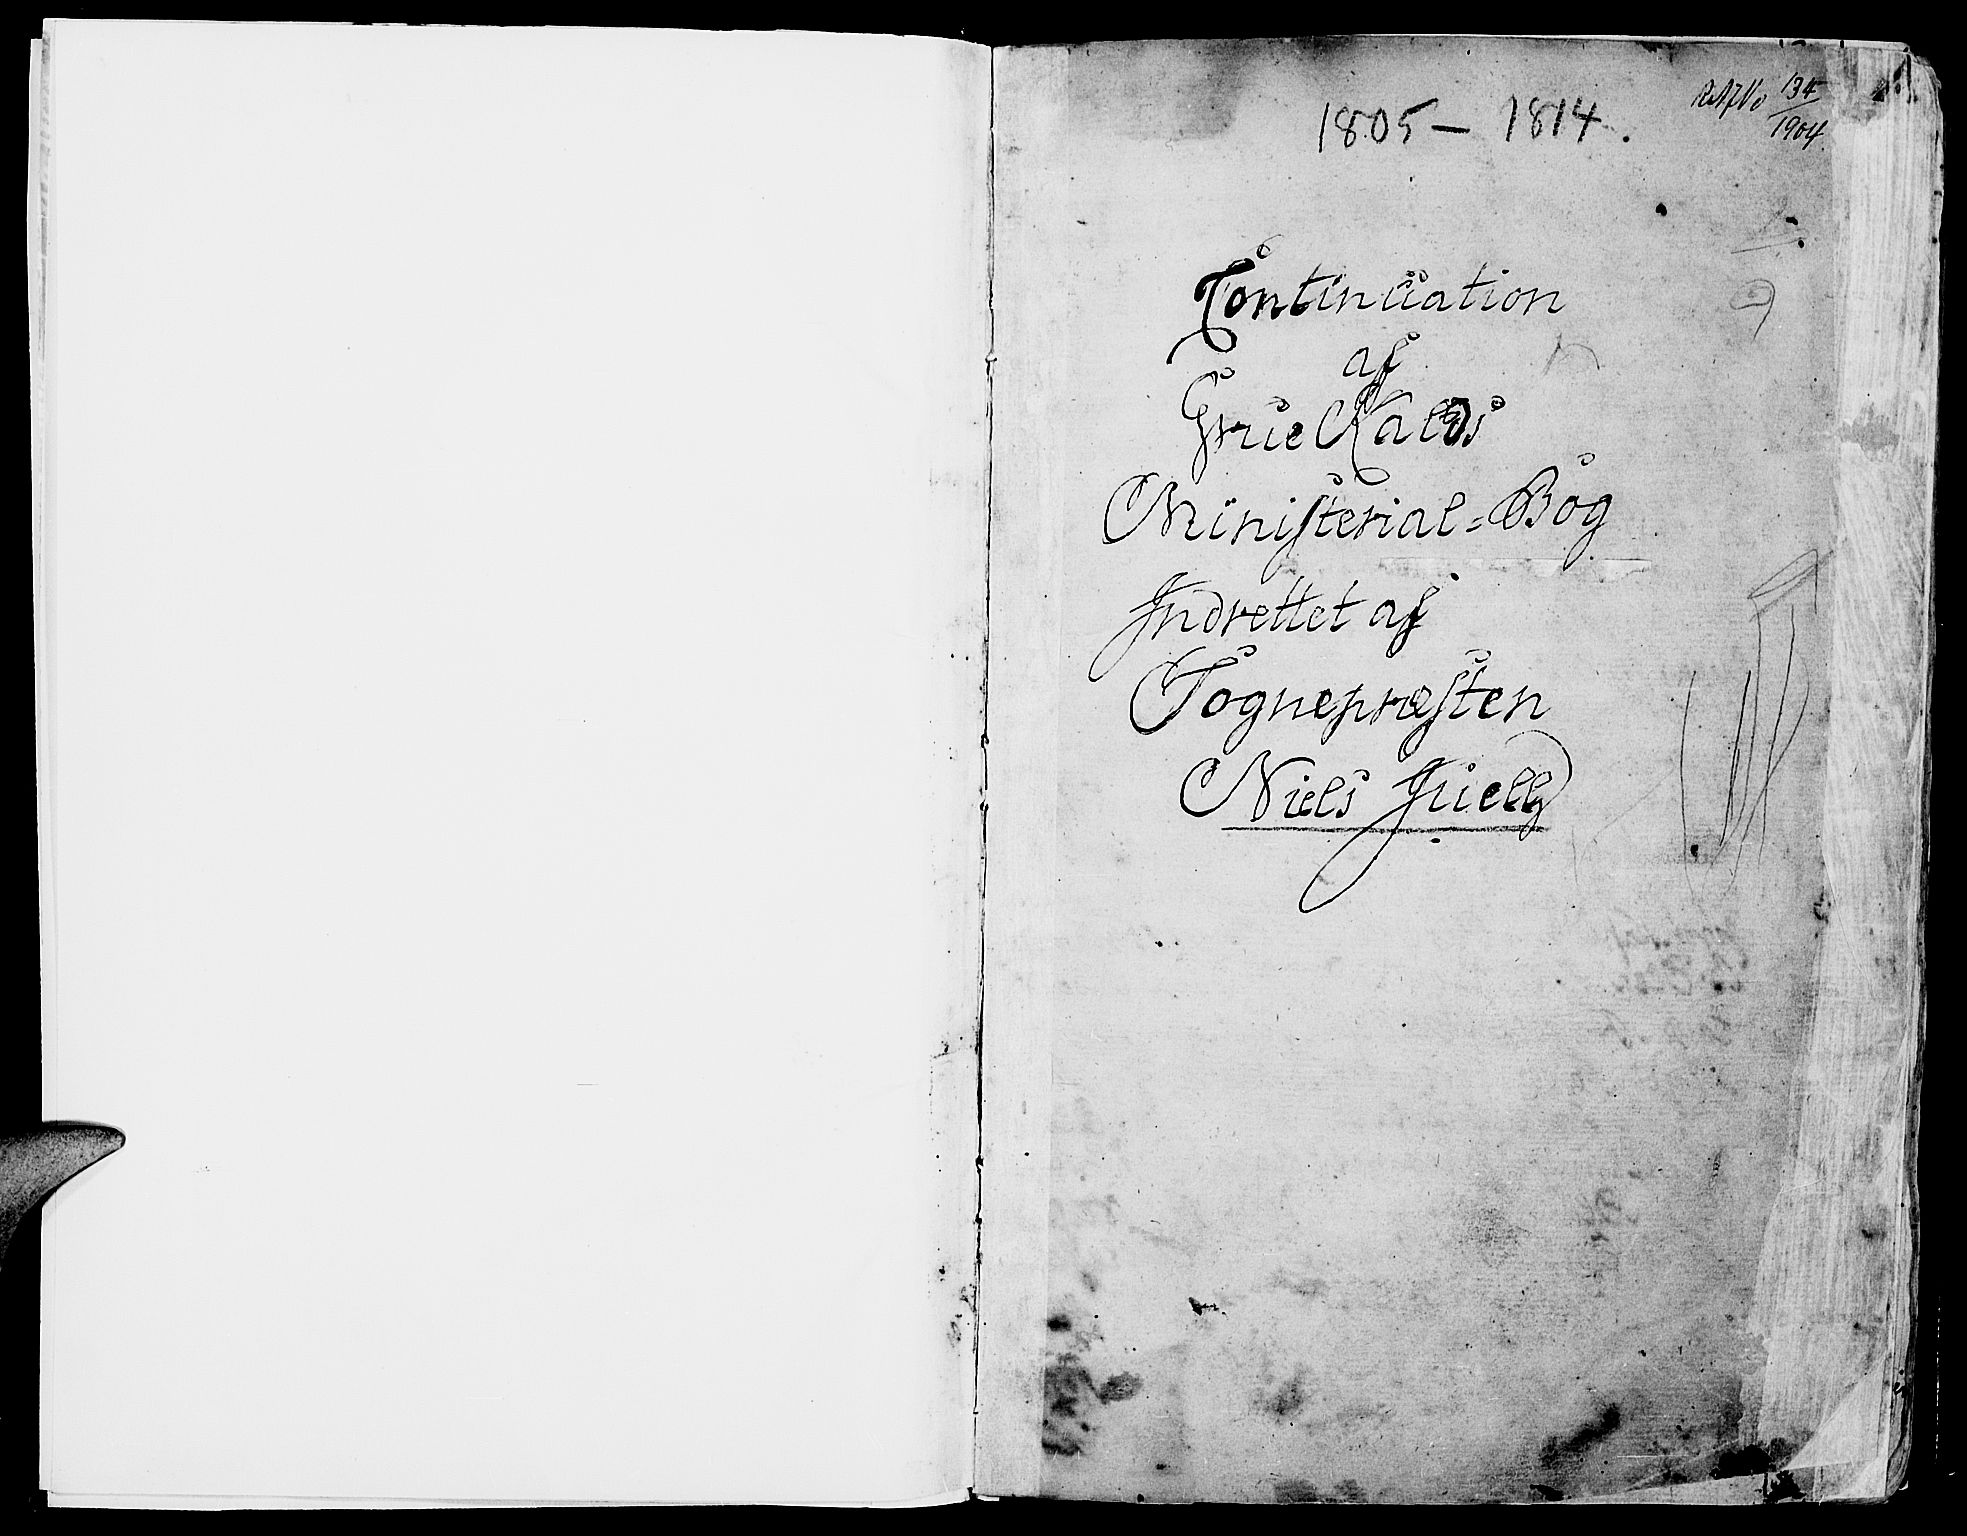 1805 – 1814.
134
1904.
Continuation
af
Grue Kalds
Ministerial=Bog
Indrettet af
Sognepræsten
Niels Juell